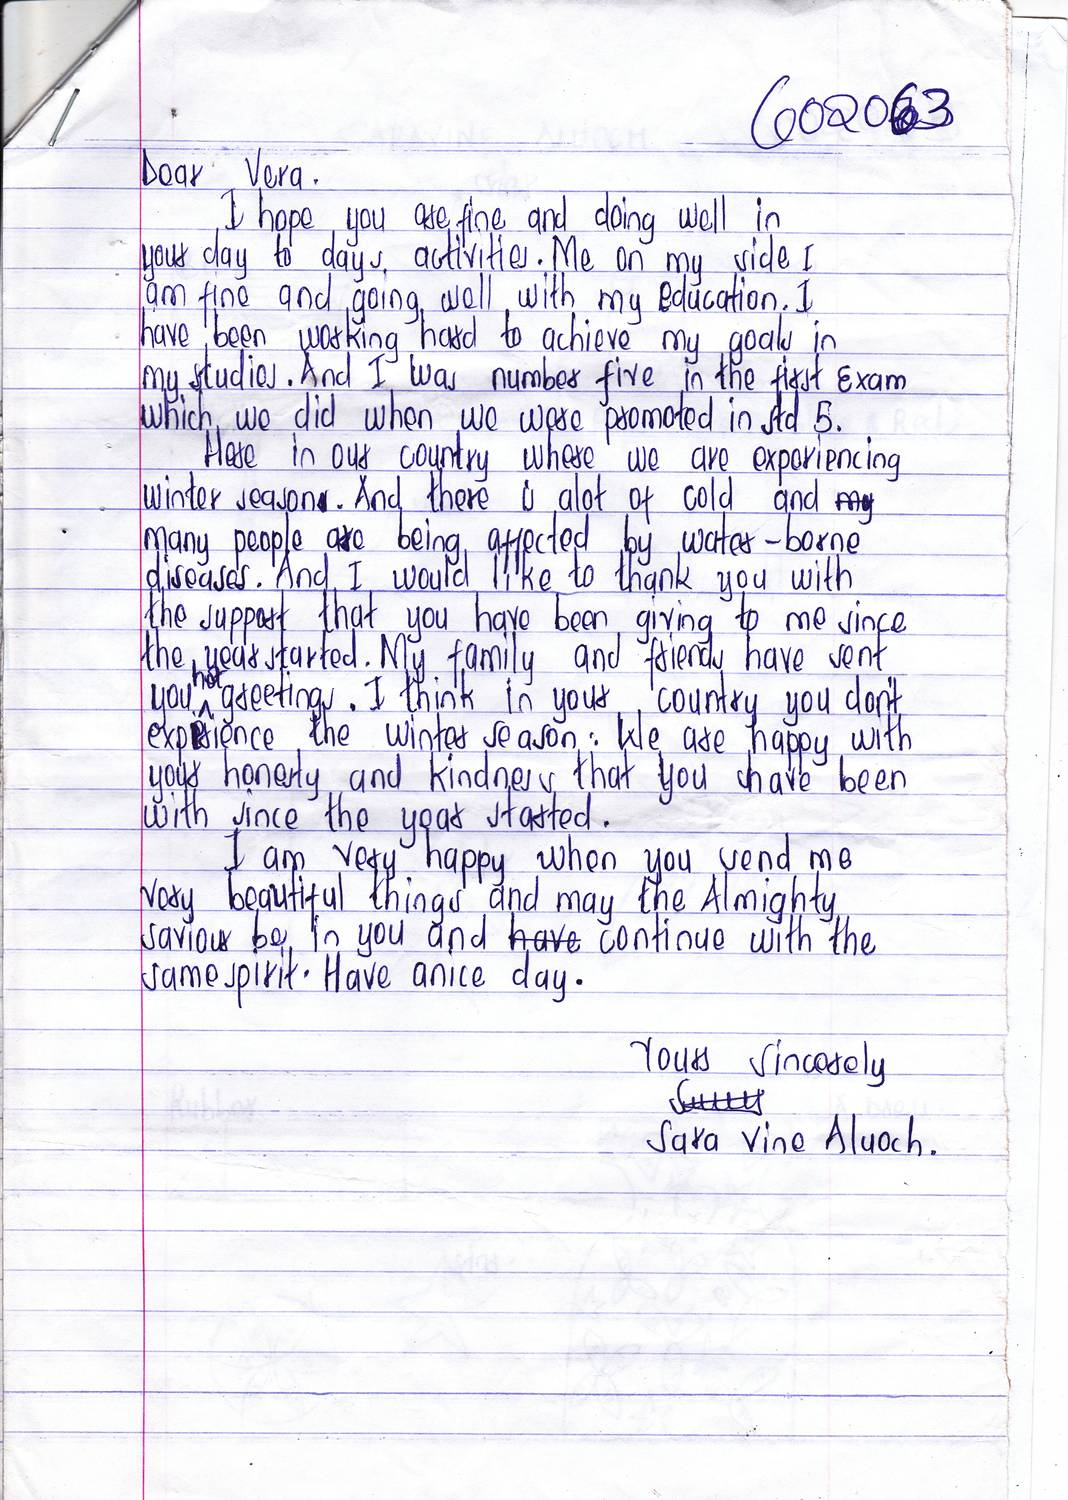 602063
Dear Vera.
I hope you are fine and doing well in
your day to days activities. Me on my side I
am fine and going well with my Education. I
have been working hard to achieve my goals in
my studies. And I was number five in the first Exam
which we did when we were promoted in std 5.
Here in our country where we are experiencing
winter season. And there is alot of cold and my
many people are being affected by water-borne
diseases. And I would like to thank you with
the support that you have been giving to me since
the year started. My family and friends have sent
you hot greetings. I think in your country you don't
experience the winter season. We are happy with
your honesty and kindness that you have been
with since the year started.
I am very happy when you send me
very beautiful things and may the Almighty
saviour be in you and have continue with the
same spirit. Have anice day.
Yours sincerely
Sara vine Aluoch.